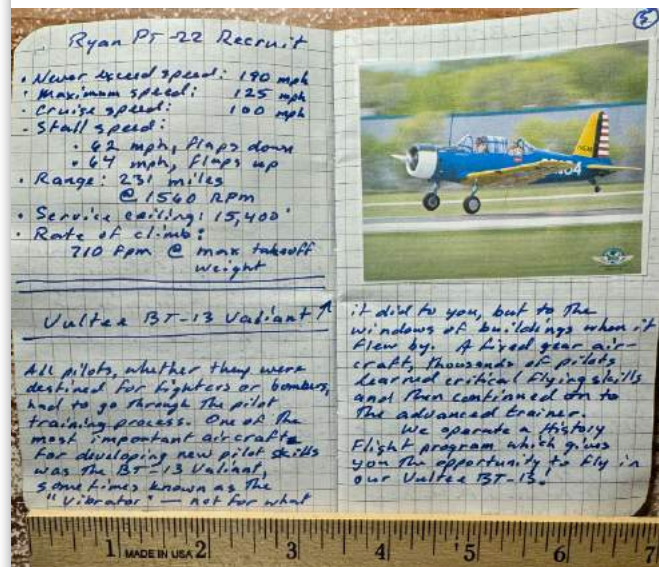 Ryan PT-22 Recruit
• Never exceed speed: 190 mph
• Maximum speed: 125 mph
• Cruise speed: 100 mph
- Stall speed:
• 62 mph, flaps down
• 64 mph, flaps up
• Range: 231 miles
@ 1560 RPM
• Service ceiling: 15,400'
• Rate of climb:
710 fpm @ max takeoff
weight
Vultee BT-13 Valiant ↑
All pilots, whether they were
destined for fighters or bombers,
had to go through the pilot
training process. One of the
most important aircrafts
for developing new pilot skills
was the BT-13 Valiant,
sometimes known as the
"Vibrator" — not for what
5
it did to you, but to the
windows of buildings when it
flew by. A fixed gear air-
craft, thousands of pilots
learned critical flying skills
and then continued on to
the advanced trainer.
We operate a History
Flight program which gives
you the opportunity to fly in
our Vultee BT-13!
1 MADE IN USA 2 3 4 5 6 7